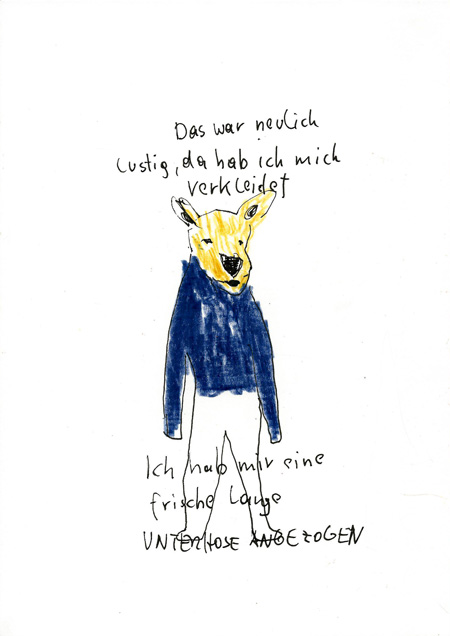 Das war neulich
lustig, da hab ich mich
verkleidet
Ich hab mir eine
frische lange
UNTERHOSE ANGEZOGEN